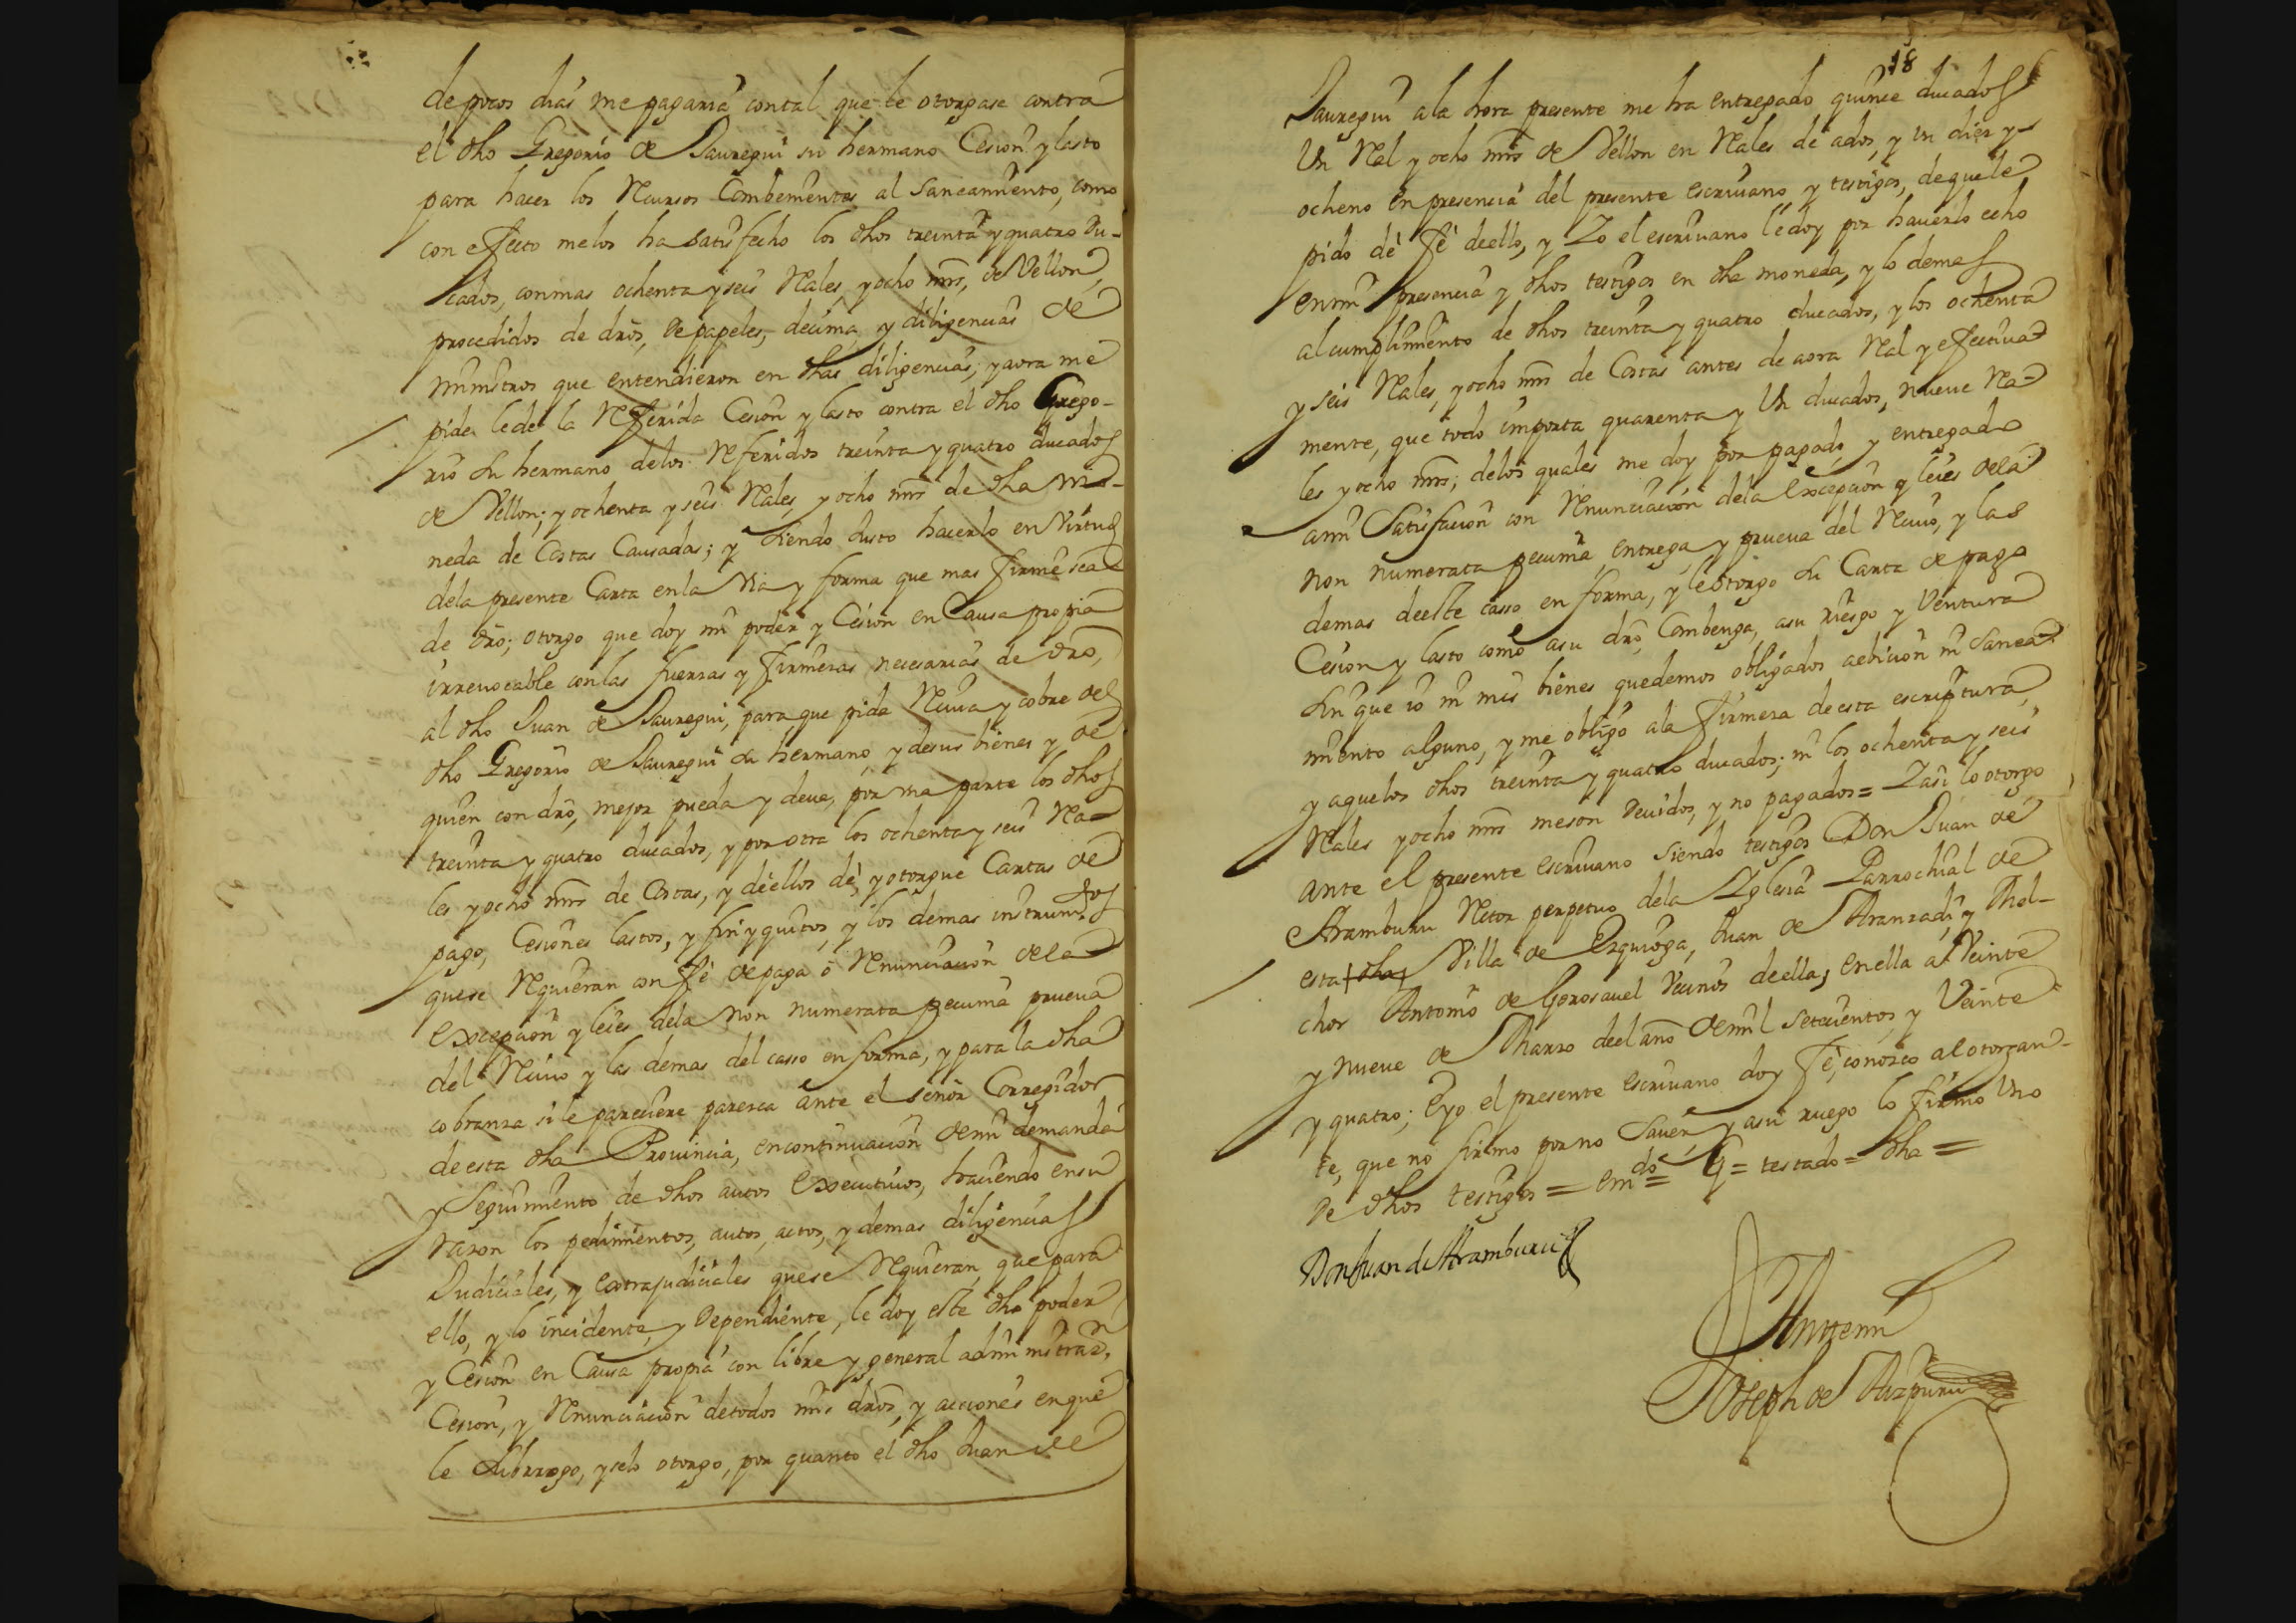 de pocos dias me pagaria con tal que le otorgase contra
el dho Gregorio de Jauregui su hermano Cesion y lasto
para hacer los Recursos Combenientes al saneamiento, como
con efecto me los ha satisfecho los dhos treinta y quatro du-
cados, con mas ochenta y seis Rales, y ocho mrs, de Vellon,
procedidos de dros, de papeles, decima, y diligencias de
ministros que entendieron en dhas diligencias; y aora me
pide le de la Referida Cesion y lasto contra el dho Grego-
rio su hermano de los Referidos treinta y quatro ducados
de Vellon; y ochenta y seis Rales, y ocho mrs de dha mo-
neda de Costas Causadas; y siendo Justo hacerlo en Virtud
de la presente Carta en la Via y forma que mas firme sea
de dro; otorgo que doy mi poder y Cesion en Causa propia
irrevocable con las fuerzas y firmezas necesarias de dro,
al dho Juan de Jauregui, para que pida Reciva y cobre del
dho Gregorio de Jauregui su hermano, y de sus bienes y de
quien con dro, mejor pueda y deva, por una parte los dhos
treinta y quatro ducados, y por otra los ochenta y seis Ra-
les y ocho mrs de Costas, y de ellos dè, y otorgue Cartas de
pago, Cesiones lastos, y finiquitos, y los demas instrumtos
que se Requieran con fè de paga ò Renunciacion de la
excepcion y leies de la non numerata pecunia prueva
del Recivo y las demas del caso en forma, y para la dha
cobranza si le pareciere paresca ante el señor Corregidor
de esta dha Provincia, en continuacion de mi demanda
y Seguimiento de dhos autos executivos, haciendo en su
razon los pedimientos, autos, actos, y demas diligencias
Judiciales, y extrajudiciales que se Requieran, que para
ello, y lo incidente, y Dependiente, le doy este dho poder
y Cesion en Causa propia con libre y general administran.
Cesion, y Renunciacion de todos mis dros, y acciones en que
le subrrogo, y selo otorgo, por quanto el dho Juan de
18
Jauregui a la hora presente me ha entregado quince ducados
Un Real y ocho mrs de Vellon en Reales de a dos, y un diez y
ocheno en presencia del presente escrivano y testigos, de que le
pido dè fè de ello, y Yo el escrivano le doy por haverlo echo
en mi presencia y dhos testigos en dha moneda, y lo demas
al cumplimiento de dhos treinta y quatro ducados, y los ochenta
y seis Rales, y ocho mrs de Costas antes de aora Real y efectiva-
mente, que todo importa quarenta y Un ducados, nueve Ra-
les y ocho mrs; de los quales me doy por pagado, y entregado
a mi Satisfacion con Renunciacion de la excepcion y leies de la
non numerata pecunia, entrega, y prueva del Recivo, y las
demas de este caso en forma, y le otorgo su Carta de pago
Cesion y lasto como a su dro, Combenga, a su riesgo y Ventura
sin que io ni mis bienes quedemos obligados a eviccion ni sanea-
miento alguno, y me obligo a la firmeza de esta escriptura,
y a que los dhos treinta y quatro ducados; ni los ochenta y seis
Rales y ocho mrs me son Devidos, y no pagados = Y asi lo otorgo
ante el presente escrivano siendo testigos Don Juan de
Aramburu Retor perpetuo de la Yglesia Parrochial de
esta dha Villa de Ezquioga, Juan de Aranzadi, y Mel-
chor Antonio de Gorosavel Vecinos de ella, en ella a Veinte
y nueve de Marzo del año de mil setecientos, y Veinte
y quatro; E yo el presente escrivano doy fè, conozco al otorgan-
te, que no firmo por no saver, y a su ruego lo firmo Uno
de dhos testigos = emdo = G = testado = dha =
Don Juan de Aramburu
Ante mi
Joseph de Aizpuru